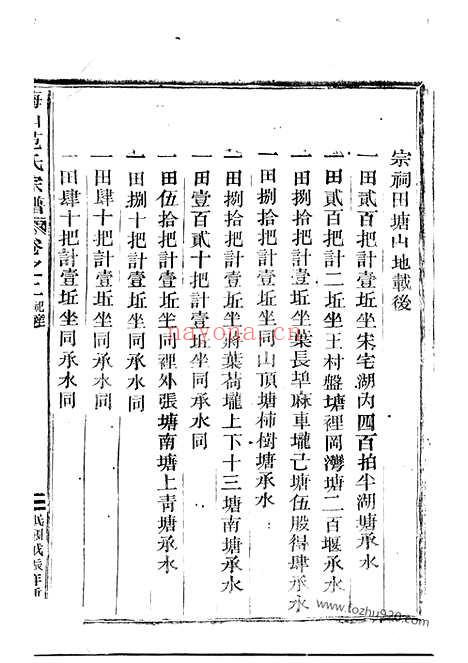 宗祠田塘山地載後
一田貳百把計壹坵坐宋宅湖內四百拍半湖塘承水
一田貳百把計二坵坐王村盤塘裡岡灣塘二百堰承水
一田捌拾把計壹坵坐葉長埠麻車壠己塘伍股得肆承水
一田捌拾把計壹坵坐同山頂塘柿樹塘承水
一田捌拾把計壹坵坐蔣葉荷壠上下十三塘南塘承水
一田壹百貳十把計壹坵坐同承水同
一田伍拾把計壹坵坐同裡外張塘南塘上靑塘承水
一田捌十把計壹坵坐同承水同
一田肆十把計壹坵坐同承水同
一田肆十把計壹坵坐同承水同
范氏宗譜 卷之二
三
民國戊辰年
nayona.cn
www.tozhu920.com